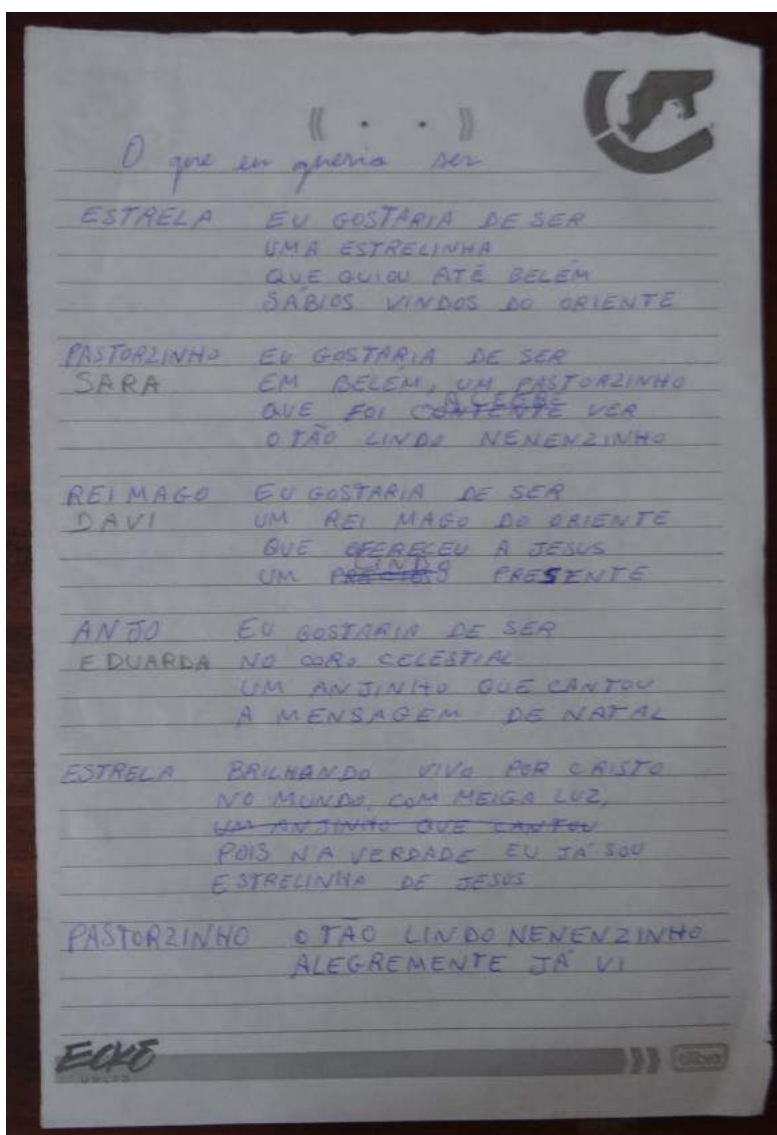 O que eu queria ser
ESTRELA EU GOSTARIA DE SER
UMA ESTRELINHA
QUE GUIOU ATÉ BELÉM
SÁBIOS VINDOS DO ORIENTE
PASTORZINHO EU GOSTARIA DE SER
SARA EM BELÉM, UM PASTORZINHO
QUE FOI CONTENTE ALEGRE VER
O TÃO LINDO NENENZINHO
REI MAGO EU GOSTARIA DE SER
DAVI UM REI MAGO DO ORIENTE
QUE OFERECEU A JESUS
UM LINDO PRESENTE
ANJO EU GOSTARIA DE SER
EDUARDA NO CORO CELESTIAL
UM ANJINHO QUE CANTOU
A MENSAGEM DE NATAL
ESTRELA BRILHANDO VIVO POR CRISTO
NO MUNDO, COM MEIGA LUZ,
UM ANJINHO QUE CANTOU
POIS NA VERDADE EU JÁ SOU
ESTRELINHA DE JESUS
PASTORZINHO O TÃO LINDO NENENZINHO
ALEGREMENTE JÁ VI
ECKŌ
UNLTD
tilibra